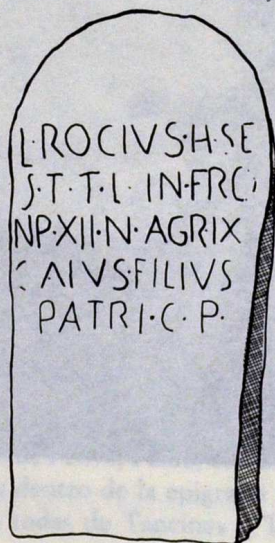 L·ROCIVS·H·SE
S·T·T·L·IN·FRO
NP·XII·N·AGR·IX
CAIVS·FILIVS
PATRI·C·P·